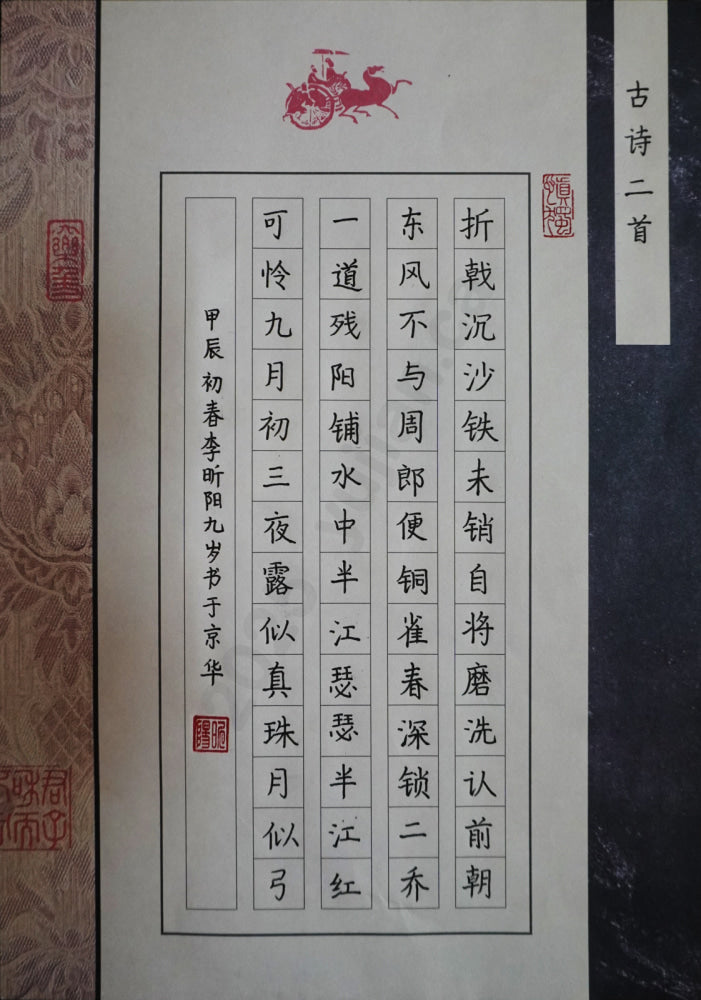 古诗二首
慎独
折戟沉沙铁未销自将磨洗认前朝
东风不与周郎便铜雀春深锁二乔
一道残阳铺水中半江瑟瑟半江红
可怜九月初三夜露似真珠月似弓
甲辰初春李昕阳九岁书于京华
昕阳
君子和而